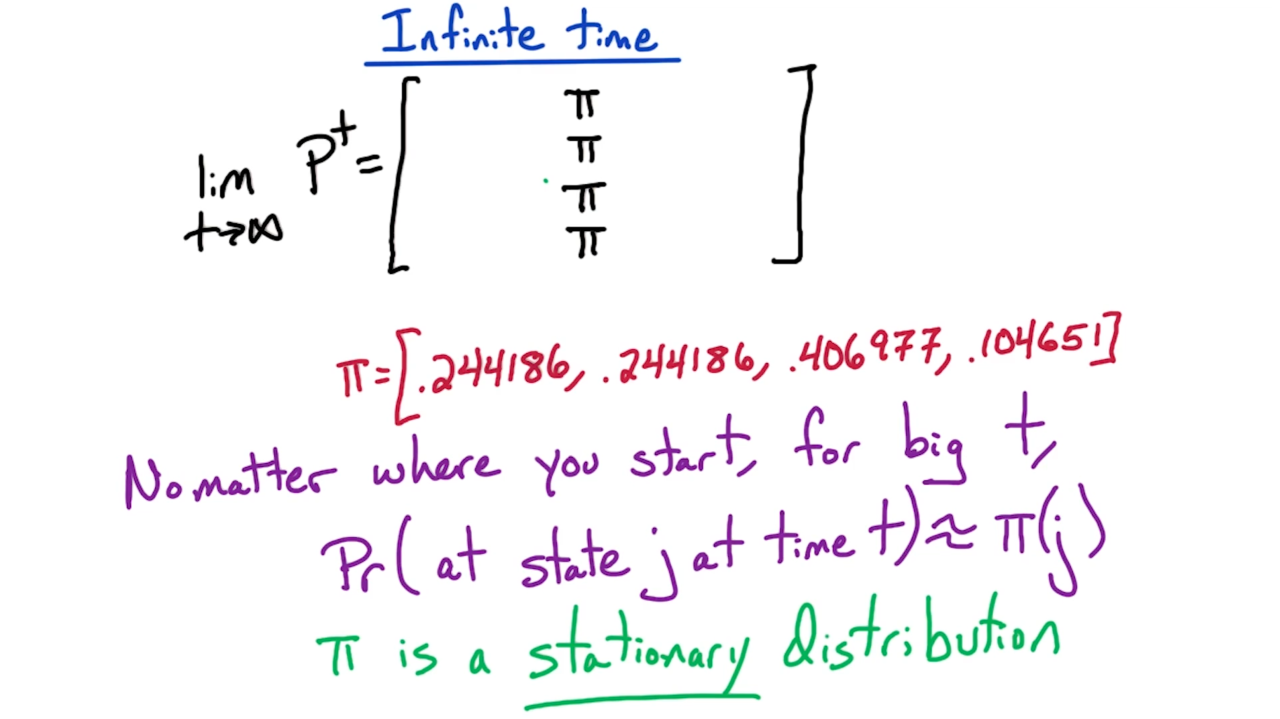 Infinite time
lim t→∞ P^t = [ π
π
π
π ]
π = [.244186, .244186, .406977, .104651]
No matter where you start, for big t,
Pr( at state j at time t) ≈ π(j)
π is a stationary distribution